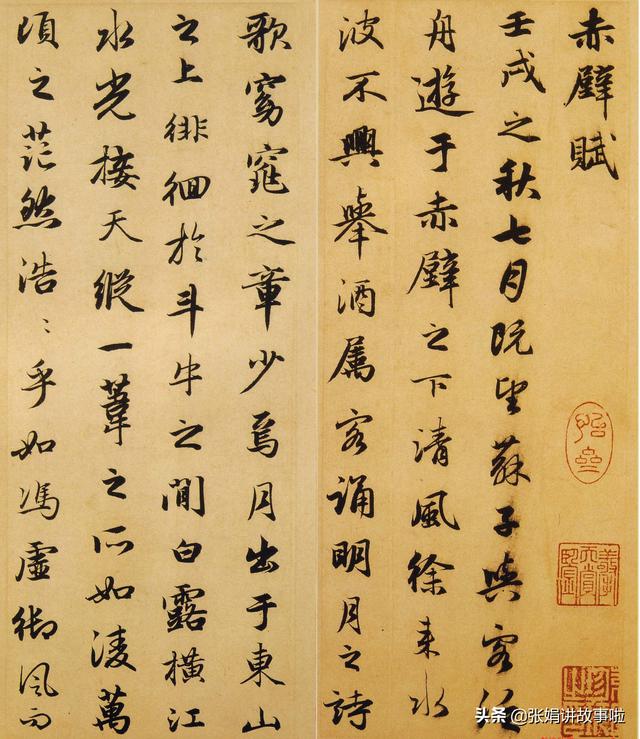 赤壁賦
壬戌之秋七月既望蘇子與客泛
舟遊于赤壁之下清風徐来水
波不興舉酒属客誦明月之詩
歌窈窕之章少焉月出于東山
之上徘徊於斗牛之間白露橫江
水光接天縱一葦之所如凌萬
頃之茫然浩〻乎如馮虛御風而
头条 @张娟讲故事啦